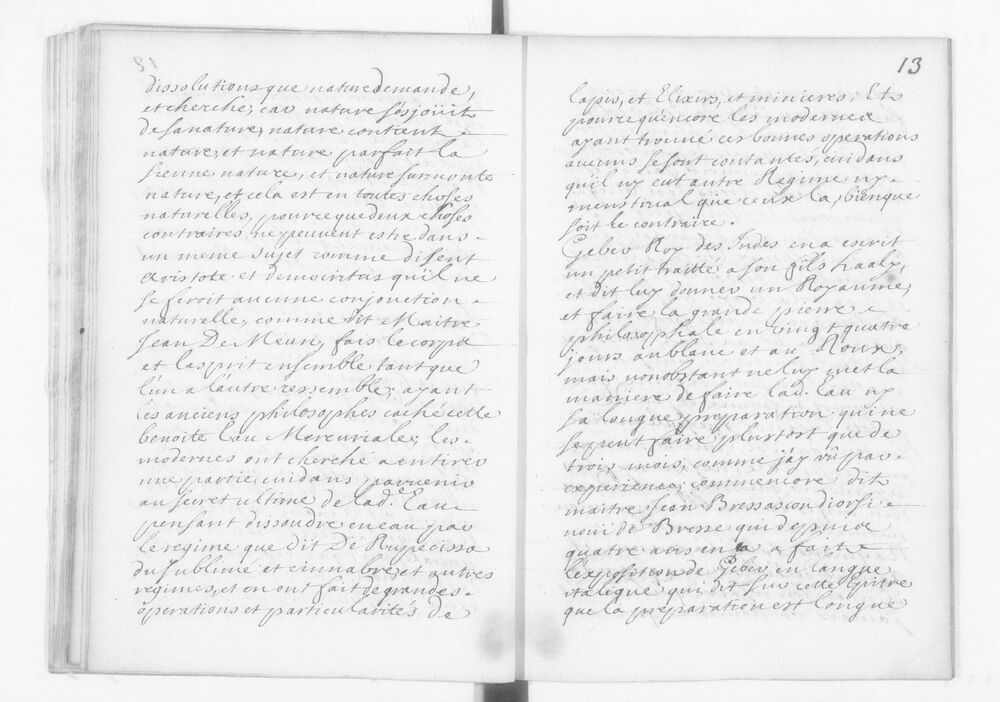 dissolutions que nature demande,
et cherche; car nature s'esjoüit
de sa nature, nature contient
nature, et nature parfait la
sienne nature, et nature surmonte
nature, et cela est en toutes choses
naturelles, pource que deux choses
contraires ne peuvent estre dans
un meme sujet comme disent
Aristote et democritus qu'il ne
se feroit aucune conjonction
naturelle, comme dit Maitre
Jean De Meun, fais le corps
et l'esprit ensemble tant que
l'un a l'autre ressemble; ayant
les anciens philosophes caché cette
benoite Eau Mercuriale; les
modernes ont cherché a en tirer
une partie, cuidans parvenir
au secret ultime de lad.e Eau
pensant dissoudre en eau par
le regime que dit De Rupecissa
du sublimé et cinnabre, et autres
regimes, et en ont fait de grandes
operations et particularités de
13
lapis, et Elixirs, et minieres; Et
pource qu'encore les modernes
ayant trouué ces bonnes operations
aucuns se sont contantés, cuidans
qu'il ny eut autre Regime ny
menstrual que ceux la, bien que
soit le contraire.
Geber Roy des Indes en a escrit
un petit traitté a son fils haaly,
et dit luy donner un Royaume,
et faire la grande pierre
philosophale en vingt quatre
jours au blanc et au Roux,
mais nonobstant ne luy met la
maniere de faire lad. Eau ny
sa longue preparation qui ne
se peut faire plustort que de
trois mois, comme j'ay vû par
experience; comm'encore dit
maitre Jean Bressascon diorsi
noui de Bresse qui depuis
quatre ans en a a fait
l'exposition de Geber en langue
italique qui dit sur cette Epitre
que la préparation est longue